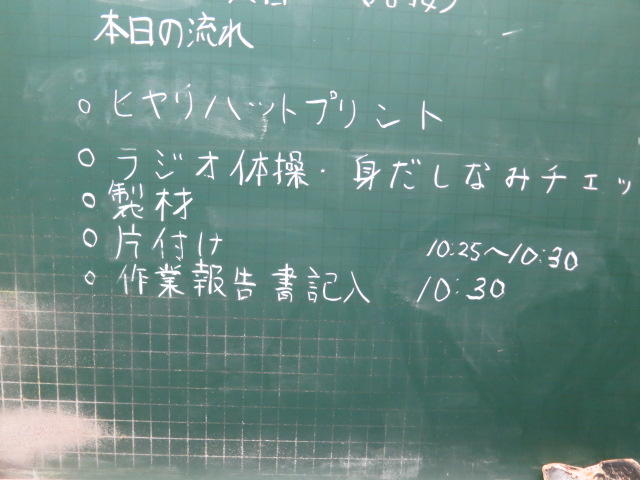 本日の流れ
○ ヒヤリハットプリント
○ ラジオ体操・身だしなみチェッ
○ 製材
○ 片付け 10:25〜10:30
○ 作業報告書記入 10:30